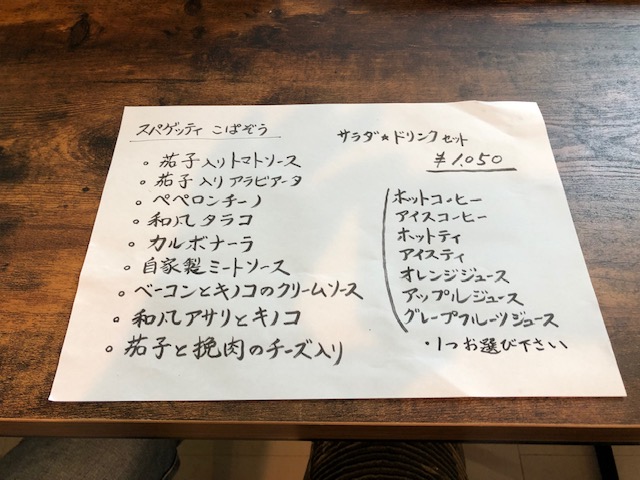 スパゲッティ こぱぞう
茄子入りトマトソース
茄子入りアラビアータ
ペペロンチーノ
和風タラコ
カルボナーラ
自家製ミートソース
ベーコンとキノコのクリームソース
和風アサリとキノコ
茄子と挽肉のチーズ入り
サラダ★ドリンクセット
¥1,050
ホットコーヒー
アイスコーヒー
ホットティ
アイスティ
オレンジジュース
アップルジュース
グレープフルーツジュース
・1つお選び下さい